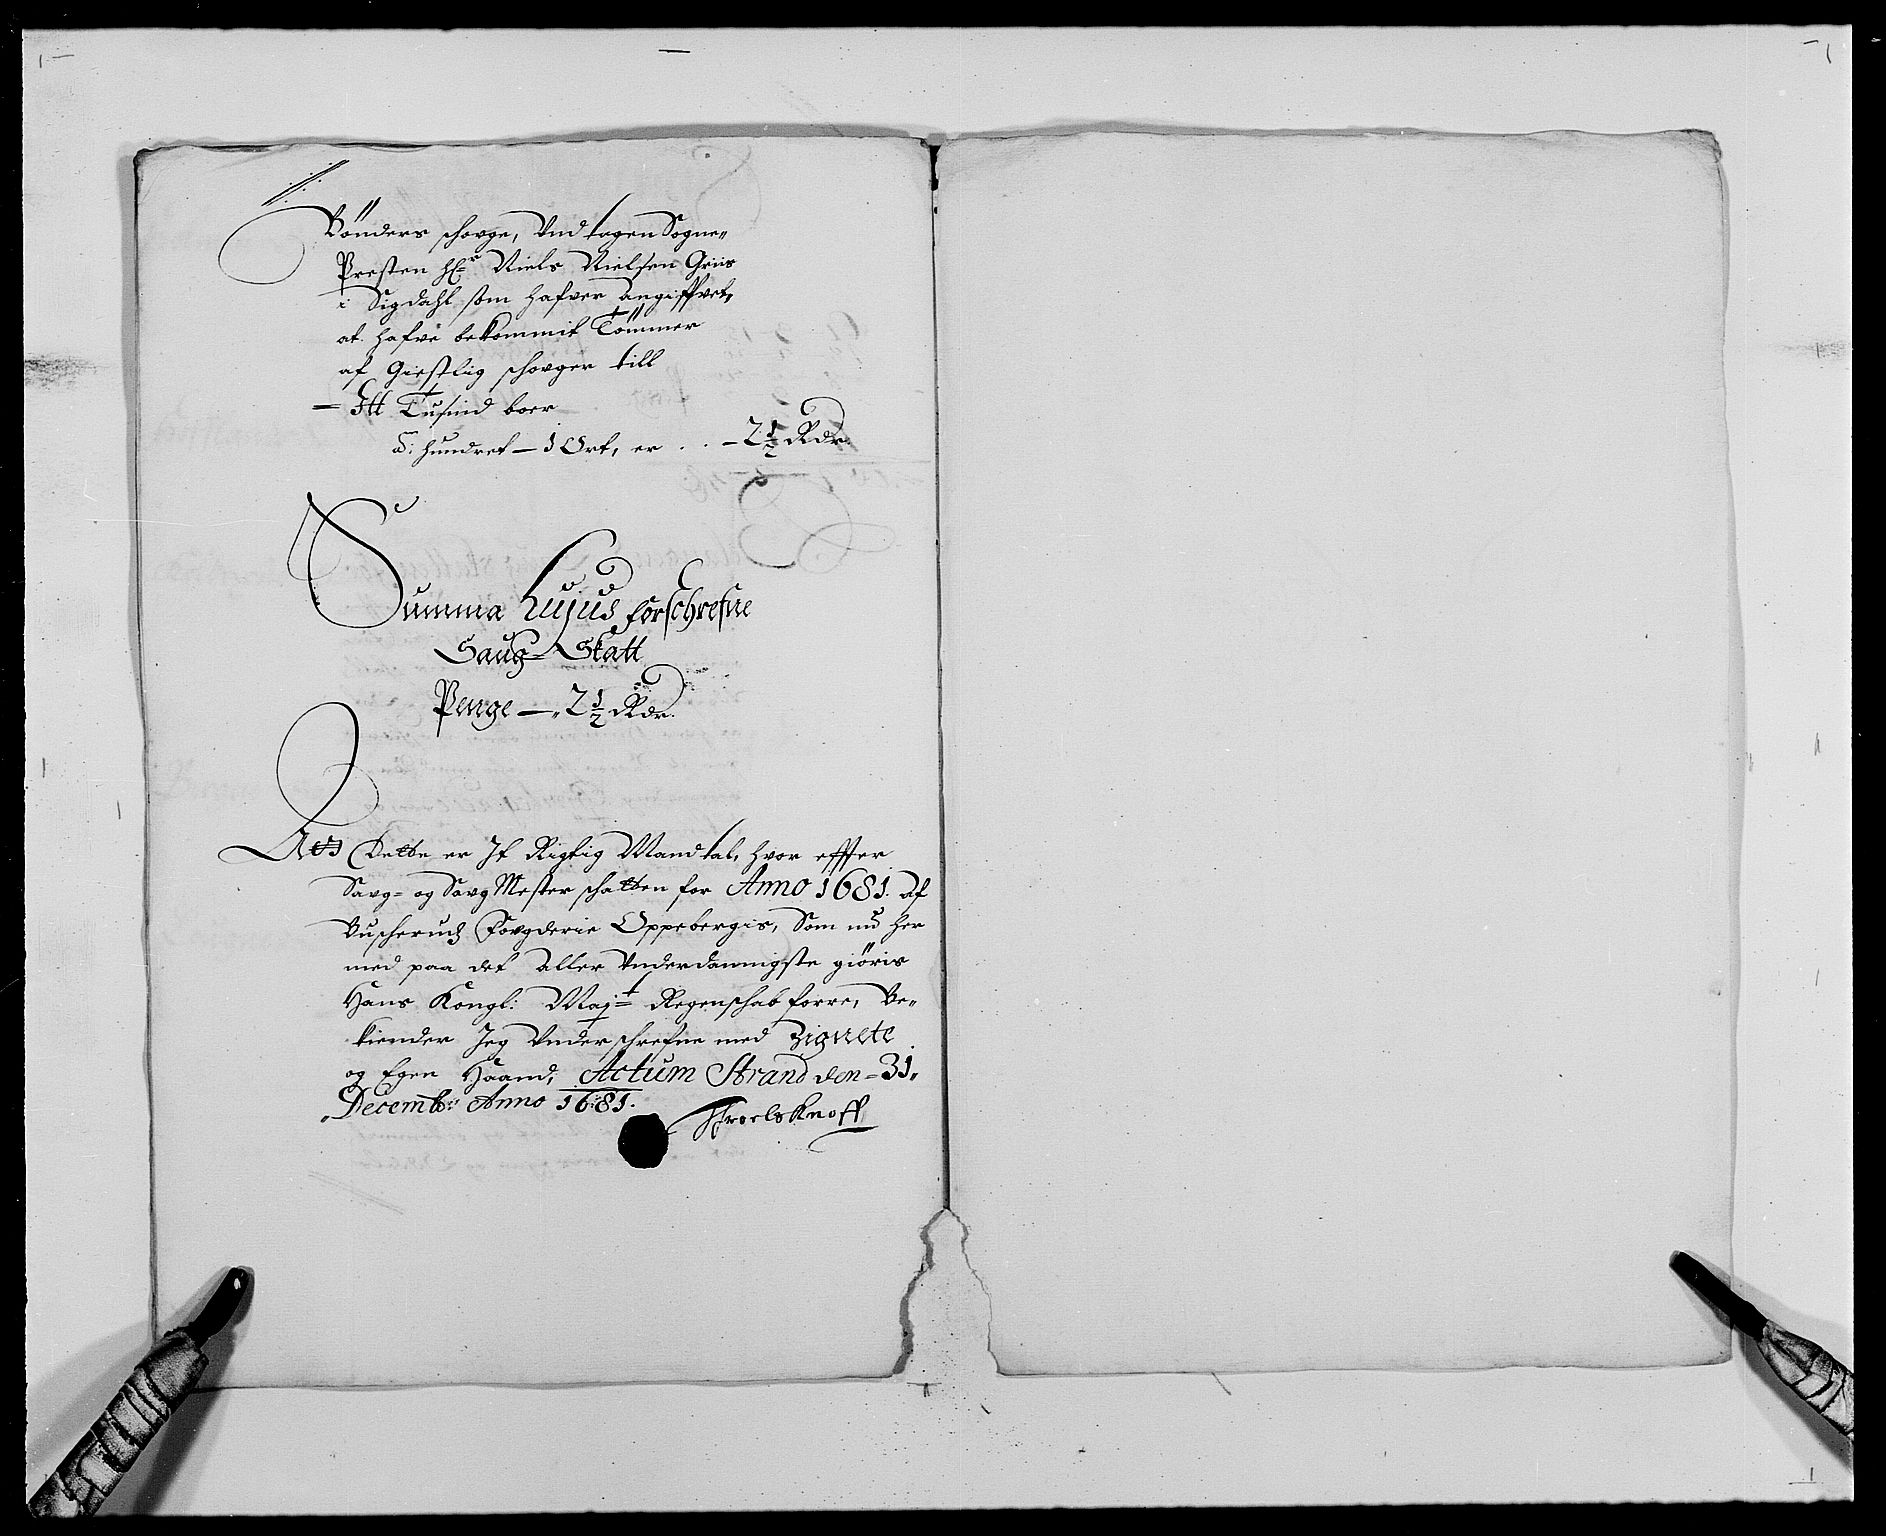 Bönders schovge, Vndtagen Sogne„
Presten Hr: Niels Nielsen Griis
i Sigdahl som hafver angiffvet,
at hafve bekommit Tömmer
af Giestlig schovger till
— Itt Tusind boer
d: hundret — 1 Ort, er . . — 2 1/2 Rdr.
Summa Hujus forschrefne
Saug- Skatt
Penge — „ 2 1/2 Rdr.
At Dette er It Rigtig Mandtal, hvor effter
Savg- og Savg Mester schatten for Anno 1681. af
Buscheruds Fovgderie Oppebergis, Som nu her
med paa det aller Vnderdannigste giöris
Hans Kongl: Maj:t Regenschab forre, Be„
kiender Jeg Vnderschrefne med Zignete
og Egen Haand, Actum Strand den - 31„
Decemb: Anno 1681.
Throels Knoff